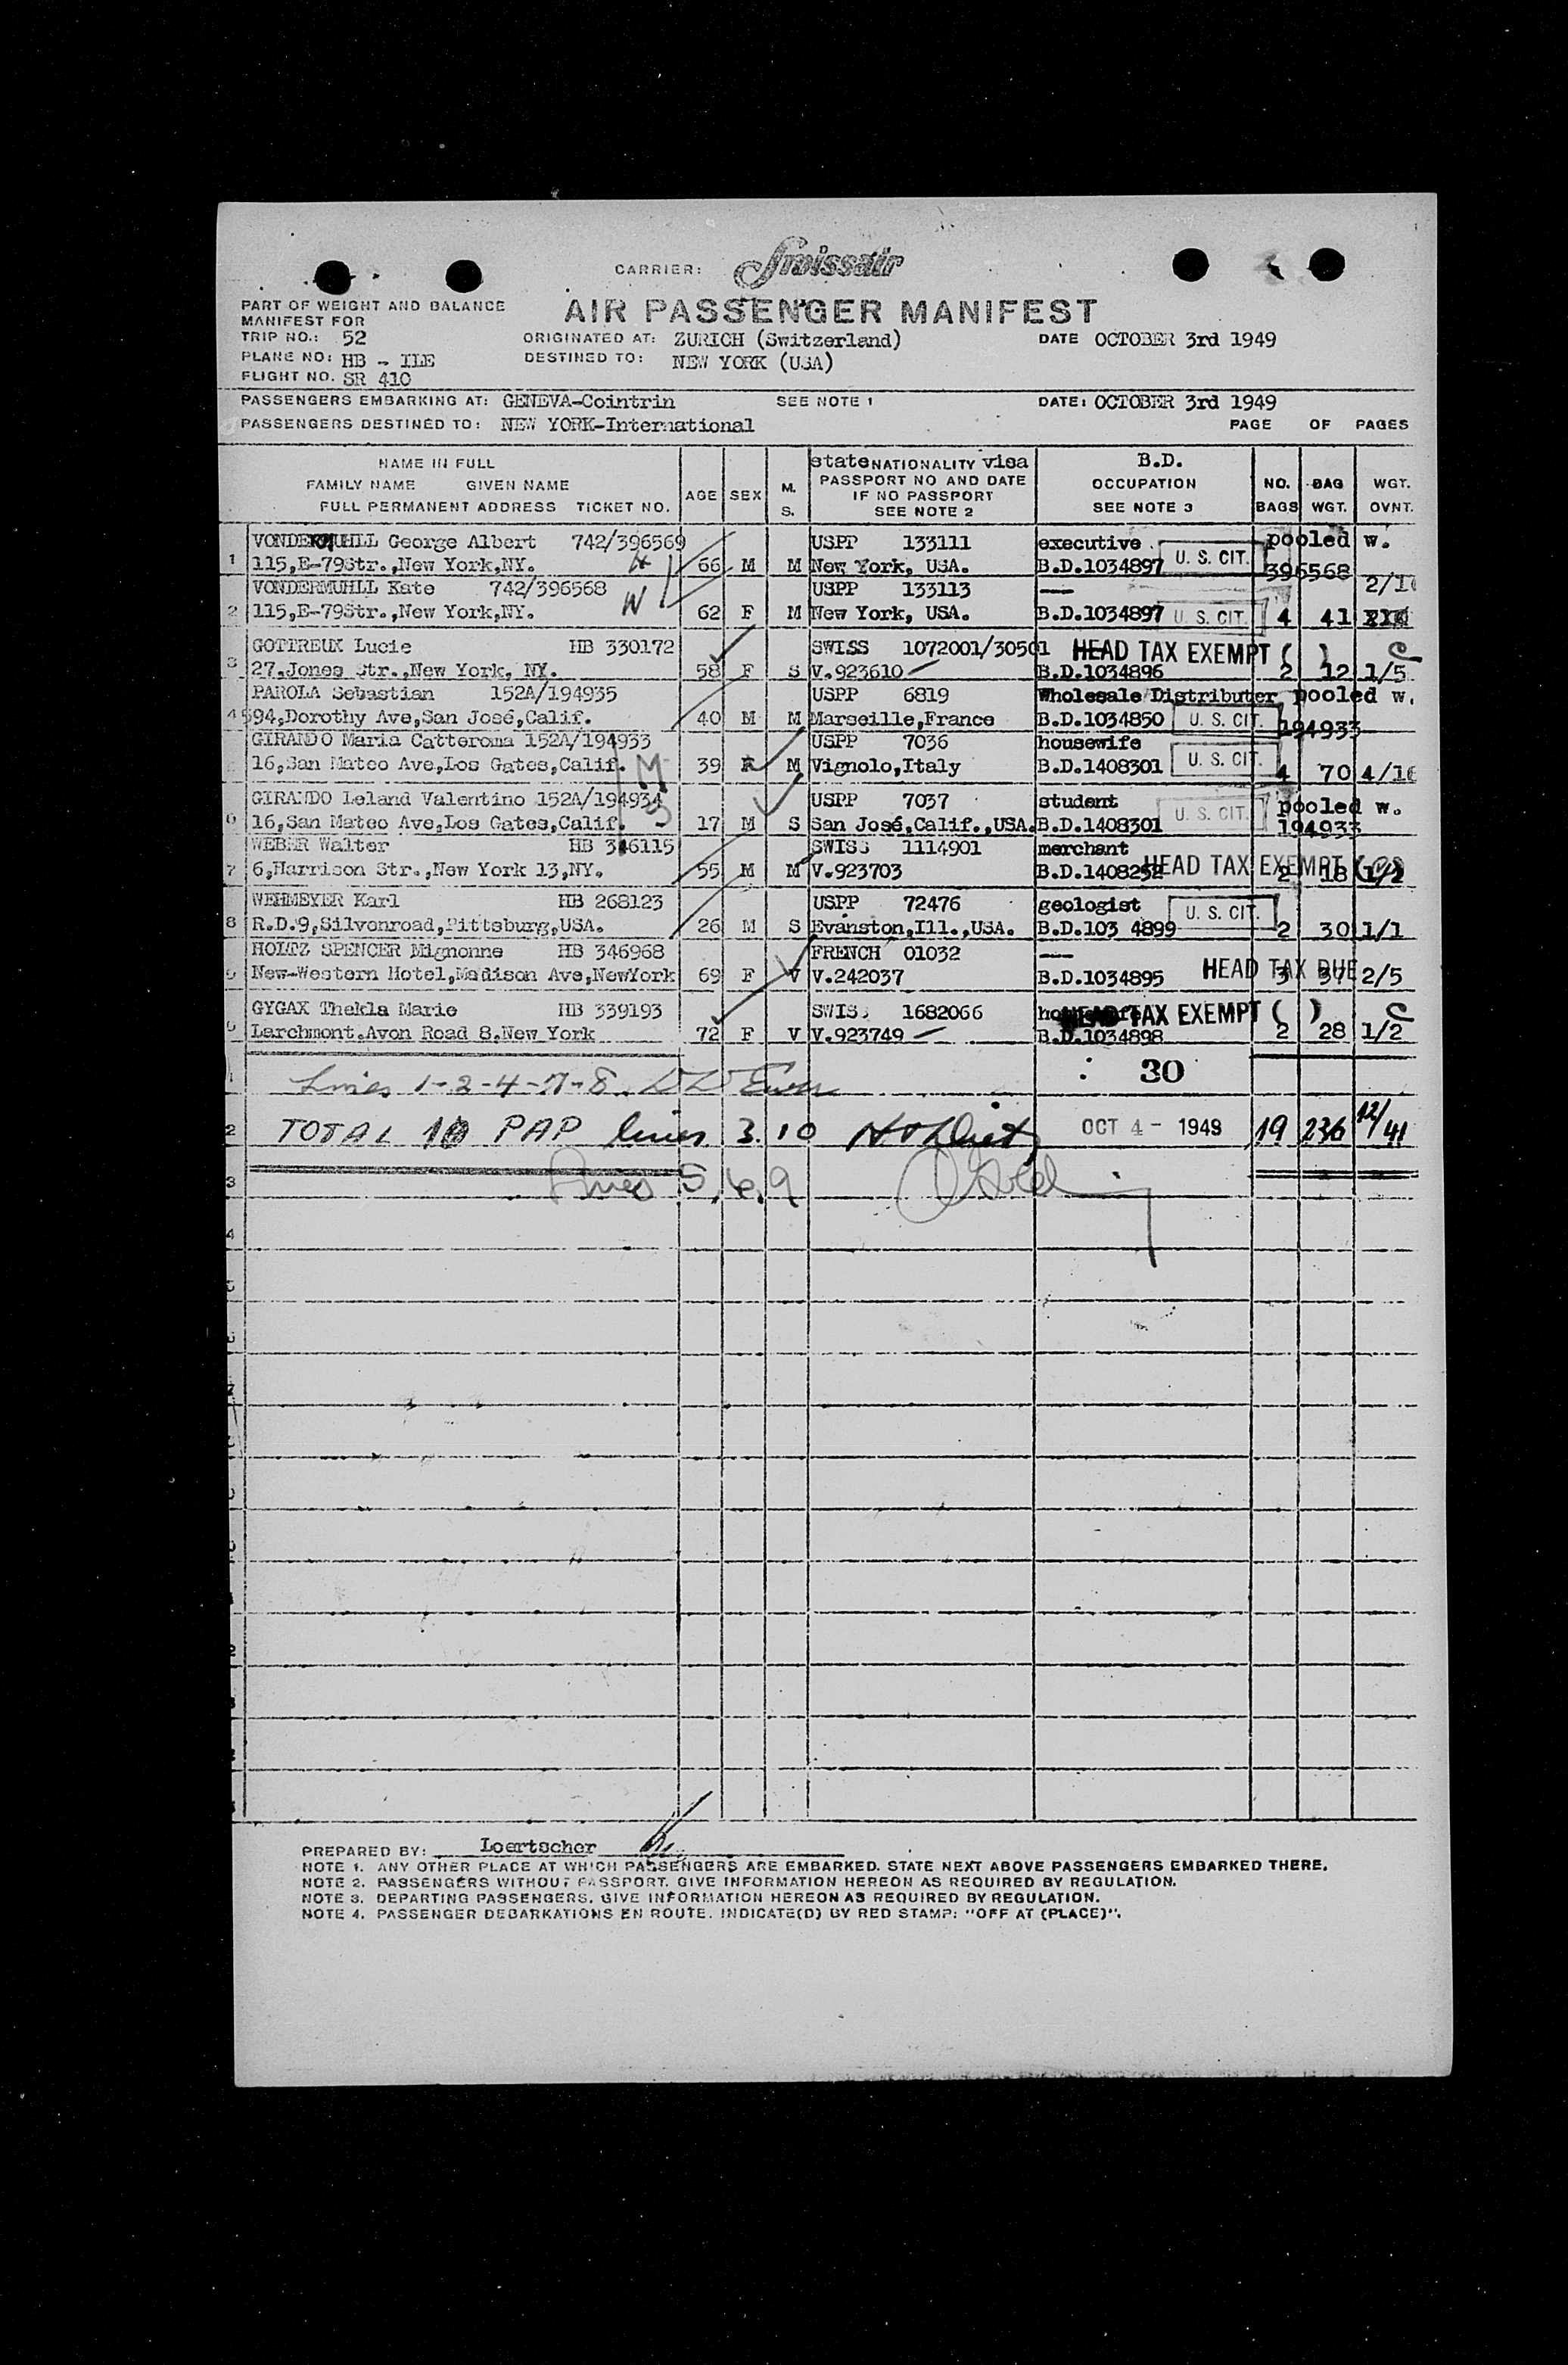 CARRIER: Swissair
PART OF WEIGHT AND BALANCE
MANIFEST FOR
AIR PASSENGER MANIFEST
TRIP NO.: 52
ORIGINATED AT: ZURICH (Switzerland)
DATE OCTOBER 3rd 1949
PLANE NO: HB - ILE
DESTINED TO: NEW YORK (USA)
FLIGHT NO. SR 410
PASSENGERS EMBARKING AT: GENEVA-Cointrin SEE NOTE 1 DATE: OCTOBER 3rd 1949
PASSENGERS DESTINED TO: NEW YORK-International PAGE OF PAGES
NAME IN FULL
FAMILY NAME GIVEN NAME
FULL PERMANENT ADDRESS TICKET NO.
AGE
SEX
M.
S.
state NATIONALITY visa
PASSPORT NO AND DATE
IF NO PASSPORT
SEE NOTE 2
B.D.
OCCUPATION
SEE NOTE 3
NO.
BAGS
BAG
WGT.
WGT.
OVNT.
VONDERMUHLL George Albert 742/396569 USPP 133111 executive pooled w.
1 115,E-79Str.,New York,NY. 66 M M New York, USA. B.D.1034897 U. S. CIT. 396568
VONDERMUHLL Kate 742/396568 W USPP 133113 -- 2/1
2 115,E-79Str.,New York,NY. 62 F M New York, USA. B.D.1034897 U. S. CIT. 4 41
GOTTREUX Lucie HB 330172 SWISS 1072001/30501 HEAD TAX EXEMPT ( ) C
3 27.Jones Str.,New York, NY. 58 F S V.923610 B.D.1034896 2 12 1/5
PAROLA Sebastian 152A/194935 USPP 6819 Wholesale Distributer pooled w.
4 594,Dorothy Ave,San José,Calif. 40 M M Marseille,France B.D.1034850 U. S. CIT. 194933
GIRANDO Maria Catteroma 152A/194933 USPP 7036 housewife
16,San Mateo Ave,Los Gates,Calif. M 39 F M Vignolo,Italy B.D.1408301 U. S. CIT. 4 70 4/16
GIRANDO Leland Valentino 152A/194934 USPP 7037 student pooled w.
6 16,San Mateo Ave,Los Gates,Calif. S 17 M S San José,Calif.,USA. B.D.1408301 U. S. CIT. 194933
WEBER Walter HB 346115 SWISS 1114901 merchant
7 6,Harrison Str.,New York 13,NY. 55 M M V.923703 B.D.1408252 HEAD TAX EXEMPT ( ) 2 18 1/2
WEHMEYER Karl HB 268123 USPP 72476 geologist
8 R.D.9,Silvenroad,Pittsburg,USA. 26 M S Evanston,Ill.,USA. B.D.103 4899 U. S. CIT. 2 30 1/1
HOLTZ SPENCER Mignonne HB 346968 FRENCH 01032 --
9 New-Western Hotel,Madison Ave,NewYork 69 F V V.242037 B.D.1034895 HEAD TAX DUE 3 37 2/5
GYGAX Thekla Marie HB 339193 SWISS 1682066 HEAD TAX EXEMPT ( ) C
Larchmont.Avon Road 8.New York 72 F V V.923749 B.D.1034898 2 28 1/2
1 Lines 1-2-4-7-8 : 30
2 TOTAL 10 PAP lines 3.10 OCT 4 - 1949 19 236 12/41
3 Lines 5.6.9
4
PREPARED BY: Loertscher
NOTE 1. ANY OTHER PLACE AT WHICH PASSENGERS ARE EMBARKED. STATE NEXT ABOVE PASSENGERS EMBARKED THERE.
NOTE 2. PASSENGERS WITHOUT PASSPORT. GIVE INFORMATION HEREON AS REQUIRED BY REGULATION.
NOTE 3. DEPARTING PASSENGERS. GIVE INFORMATION HEREON AS REQUIRED BY REGULATION.
NOTE 4. PASSENGER DEBARKATIONS EN ROUTE. INDICATE(D) BY RED STAMP: "OFF AT (PLACE)".